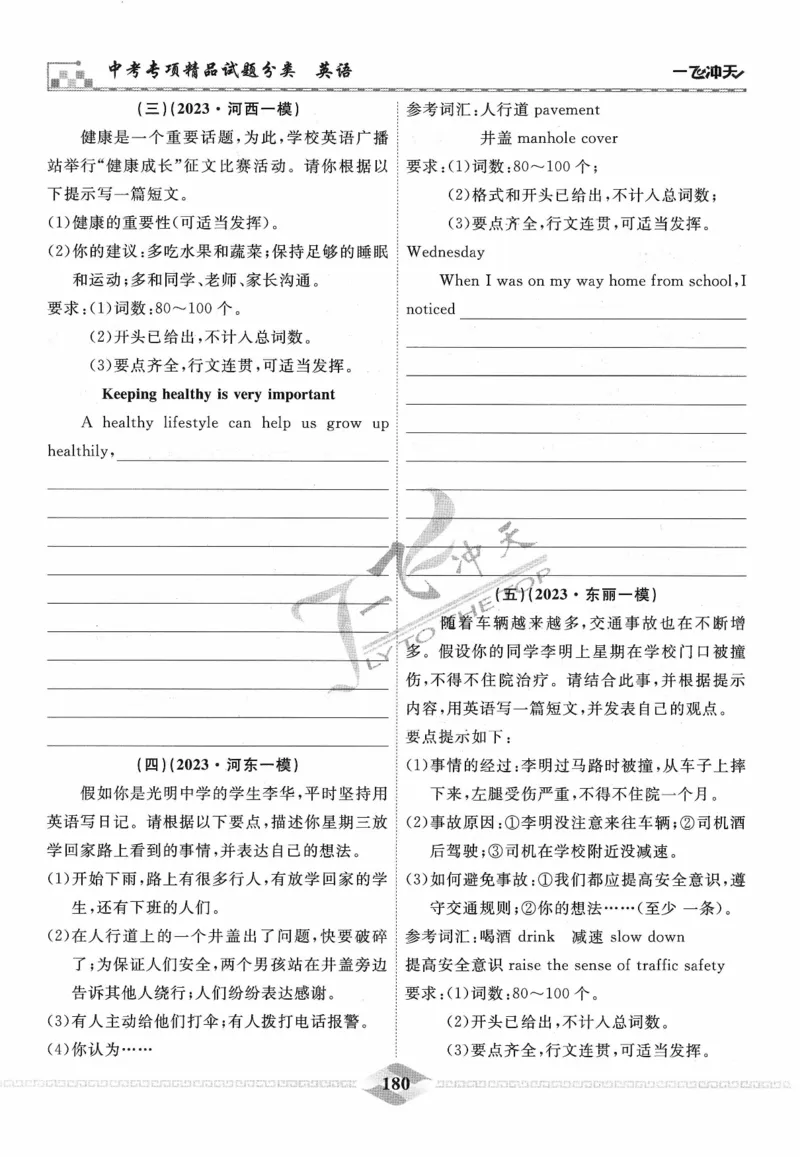 中考专项精品试题分类 英语
一飞冲天
(三)(2023·河西一模)
健康是一个重要话题,为此,学校英语广播
站举行“健康成长”征文比赛活动。请你根据以
下提示写一篇短文。
(1)健康的重要性(可适当发挥)。
(2)你的建议:多吃水果和蔬菜;保持足够的睡眠
和运动;多和同学、老师、家长沟通。
要求:(1)词数:80~100个。
(2)开头已给出,不计入总词数。
(3)要点齐全,行文连贯,可适当发挥。
Keeping healthy is very important
A healthy lifestyle can help us grow up
healthily,
(四)(2023·河东一模)
假如你是光明中学的学生李华,平时坚持用
英语写日记。请根据以下要点,描述你星期三放
学回家路上看到的事情,并表达自己的想法。
(1)开始下雨,路上有很多行人,有放学回家的学
生,还有下班的人们。
(2)在人行道上的一个井盖出了问题,快要破碎
了;为保证人们安全,两个男孩站在井盖旁边
告诉其他人绕行;人们纷纷表达感谢。
(3)有人主动给他们打伞;有人拨打电话报警。
(4)你认为……
参考词汇:人行道 pavement
井盖 manhole cover
要求:(1)词数:80~100个;
(2)格式和开头已给出,不计入总词数;
(3)要点齐全,行文连贯,可适当发挥。
Wednesday
When I was on my way home from school,I
noticed
一飞冲天
FLY TO THE TOP
(五)(2023·东丽一模)
随着车辆越来越多,交通事故也在不断增
多。假设你的同学李明上星期在学校门口被撞
伤,不得不住院治疗。请结合此事,并根据提示
内容,用英语写一篇短文,并发表自己的观点。
要点提示如下:
(1)事情的经过:李明过马路时被撞,从车子上摔
下来,左腿受伤严重,不得不住院一个月。
(2)事故原因:①李明没注意来往车辆;②司机酒
后驾驶;③司机在学校附近没减速。
(3)如何避免事故:①我们都应提高安全意识,遵
守交通规则;②你的想法……(至少一条)。
参考词汇:喝酒 drink 减速 slow down
提高安全意识 raise the sense of traffic safety
要求:(1)词数:80~100个。
(2)开头已给出,不计入总词数。
(3)要点齐全,行文连贯,可适当发挥。
180